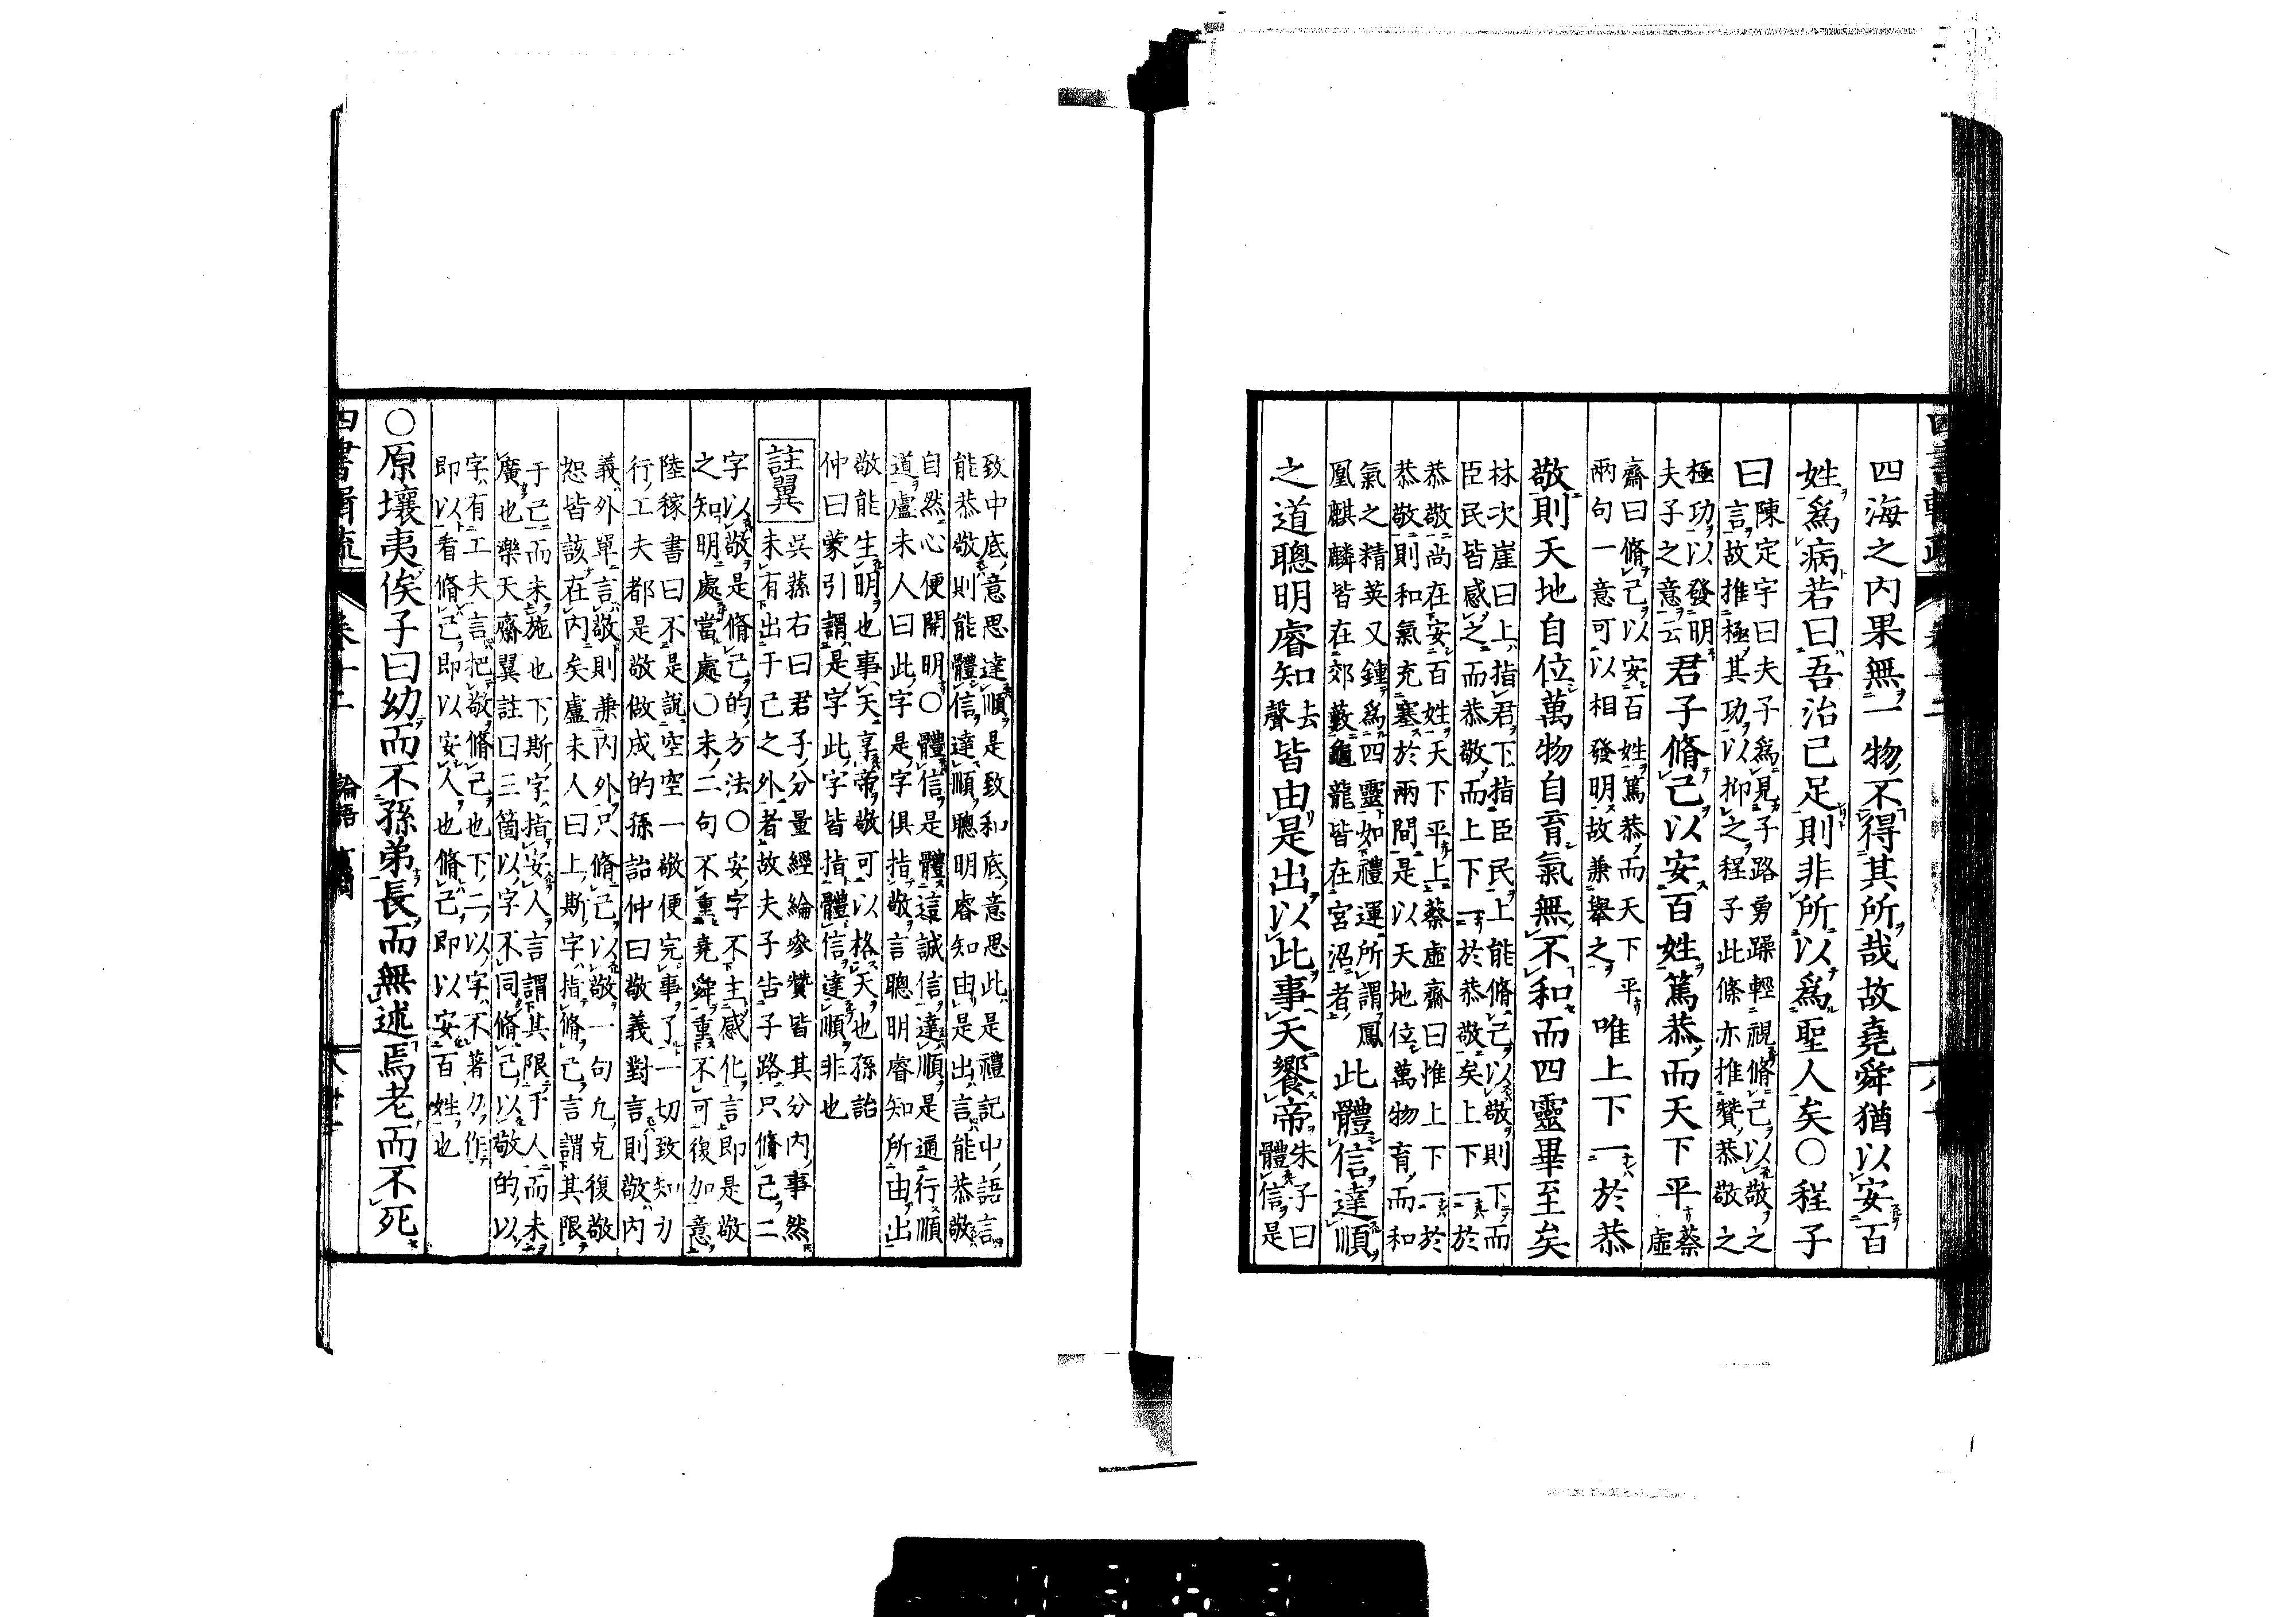 四海之内果無一物不得其所哉故堯舜猶以安百
姓爲病若曰吾治已足則非所以爲聖人矣○程子
曰
陳定宇曰夫子爲見子路勇躁輕視脩己以敬之
言故推極其功以抑之程子此條亦推賛恭敬之
極功以發明
夫子之意云
君子脩己以安百姓篤恭而天下平
蔡
虛
齋曰脩己以安百姓篤恭而天下平
兩句一意可以相發明故兼舉之
唯上下一於恭
敬則天地自位萬物自育氣無不和而四靈畢至矣
林次崖曰上指君下指臣民上能脩己以敬則下而
臣民皆感之而恭敬而上下一於恭敬矣上下一於
恭敬尚在安百姓天下平上蔡虛齋曰惟上下一於
恭敬則和氣充塞於兩間是以天地位萬物育而和
氣之精英又鍾爲四靈如禮運所謂鳳
凰麒麟皆在郊藪龜龍皆在宮沼者
此體信達順
之道聰明睿知
去
聲
皆由是出以此事天饗帝
朱子曰
體信是
致中底意思達順是致和底意思此是禮記中語言
能恭敬則能體信達順聰明睿知由是出言能恭敬
自然心便開明○體信是體這誠信達順是通行順
道盧未人曰此字是字俱指敬言聰明睿知所由出
敬能生明也事天享帝敬可以格天也孫詒
仲曰蒙引謂是字此字皆指體信達順非也
註翼
吳蓀右曰君子分量經綸參贊皆其分内事然
未有出于己之外者故夫子告子路只脩己二
字以敬是脩己的方法○安字不主感化言即是敬
之知明處當處○末二句不重堯舜重不可復加意
陸稼書曰不是說空空一敬便完事了一切致知力
行工夫都是敬做成的孫詒仲曰敬義對言則敬内
義外單言敬則兼内外只脩己以敬一句九克復敬
恕皆該在内矣盧未人曰上斯字指脩己言謂其限
于己而未施也下斯字指安人言謂其限于人而未
廣也樂天齋翼註曰三箇以字不同脩己以敬的以
字有工夫言把敬脩己也下二以字不著力作
即以看脩己即以安人也脩己即以安百姓也
○原壤夷俟子曰幼而不孫弟長而無述焉老而不死
四書輯疏
卷十二
論語